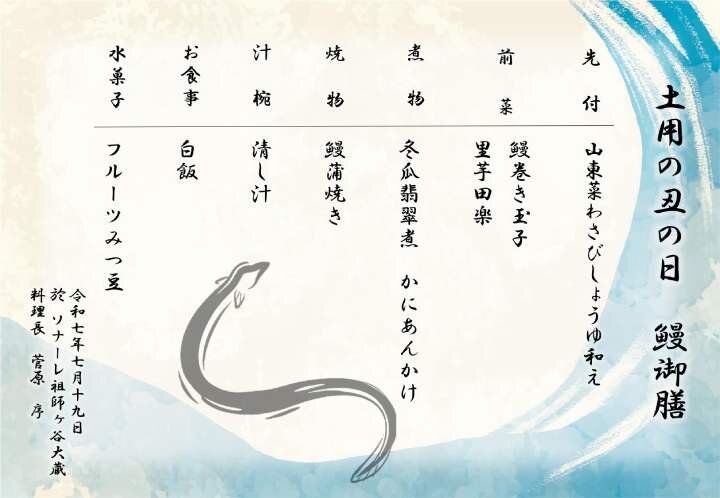 土用の丑の日　鰻御膳
先付
山東菜わさびしょうゆ和え
前菜
鰻巻き玉子
里芋田楽
煮物
冬瓜翡翠煮　かにあんかけ
焼物
鰻蒲焼き
汁椀
清し汁
お食事
白飯
水菓子
フルーツみつ豆
令和七年七月十九日
於　ソナーレ祖師ヶ谷大蔵
料理長　菅原　序